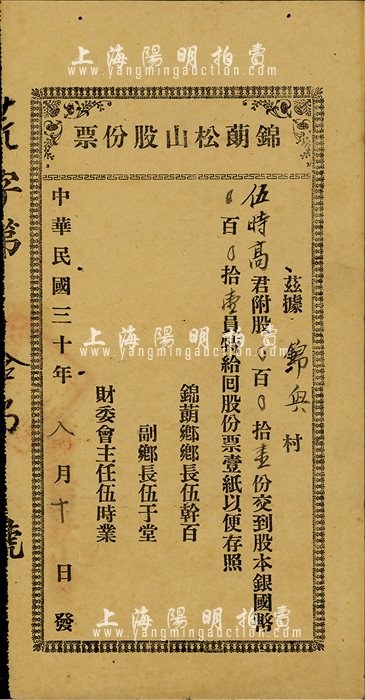 上海陽明拍賣
www.yangmingauction.com
錦蕳松山股份票
茲據 錦興 村
伍時高君附股 0百0拾壹份交到股本銀國幣
0百0拾壹員特給囘股份票壹紙以便存照
錦蕳鄉鄉長伍幹百
副鄉長伍于堂
財委會主任伍時業
中華民國三十年八月十日發
上海陽明拍賣
www.yangmingauction.com
上海陽明拍賣
www.yangmingauction.com
字第
號